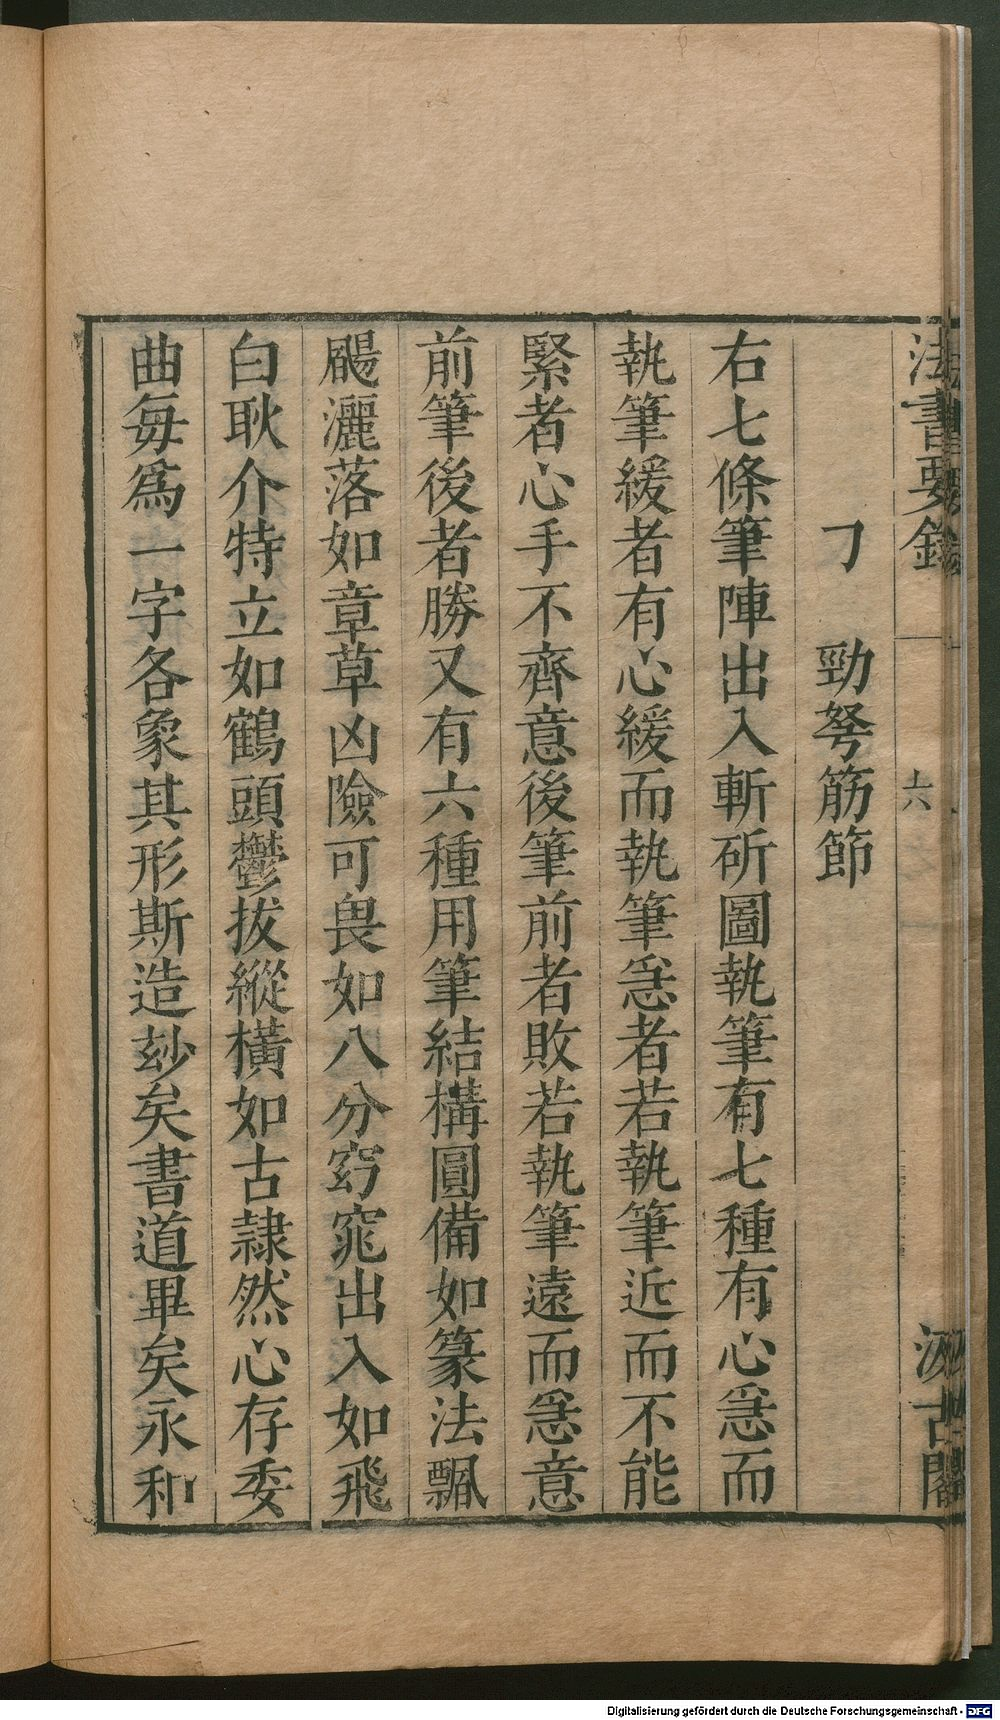 法書要錄
六
汲古閣
㇆ 勁弩筋節
右七條筆陣出入斬斫圖執筆有七種有心急而
執筆緩者有心緩而執筆急者若執筆近而不能
緊者心手不齊意後筆前者敗若執筆遠而急意
前筆後者勝又有六種用筆結構圓備如篆法飄
颺灑落如章草凶險可畏如八分窈窕出入如飛
白耿介特立如鶴頭鬱拔縱橫如古隸然心存委
曲每爲一字各象其形斯造玅矣書道畢矣永和
Digitalisierung gefördert durch die Deutsche Forschungsgemeinschaft - DFG